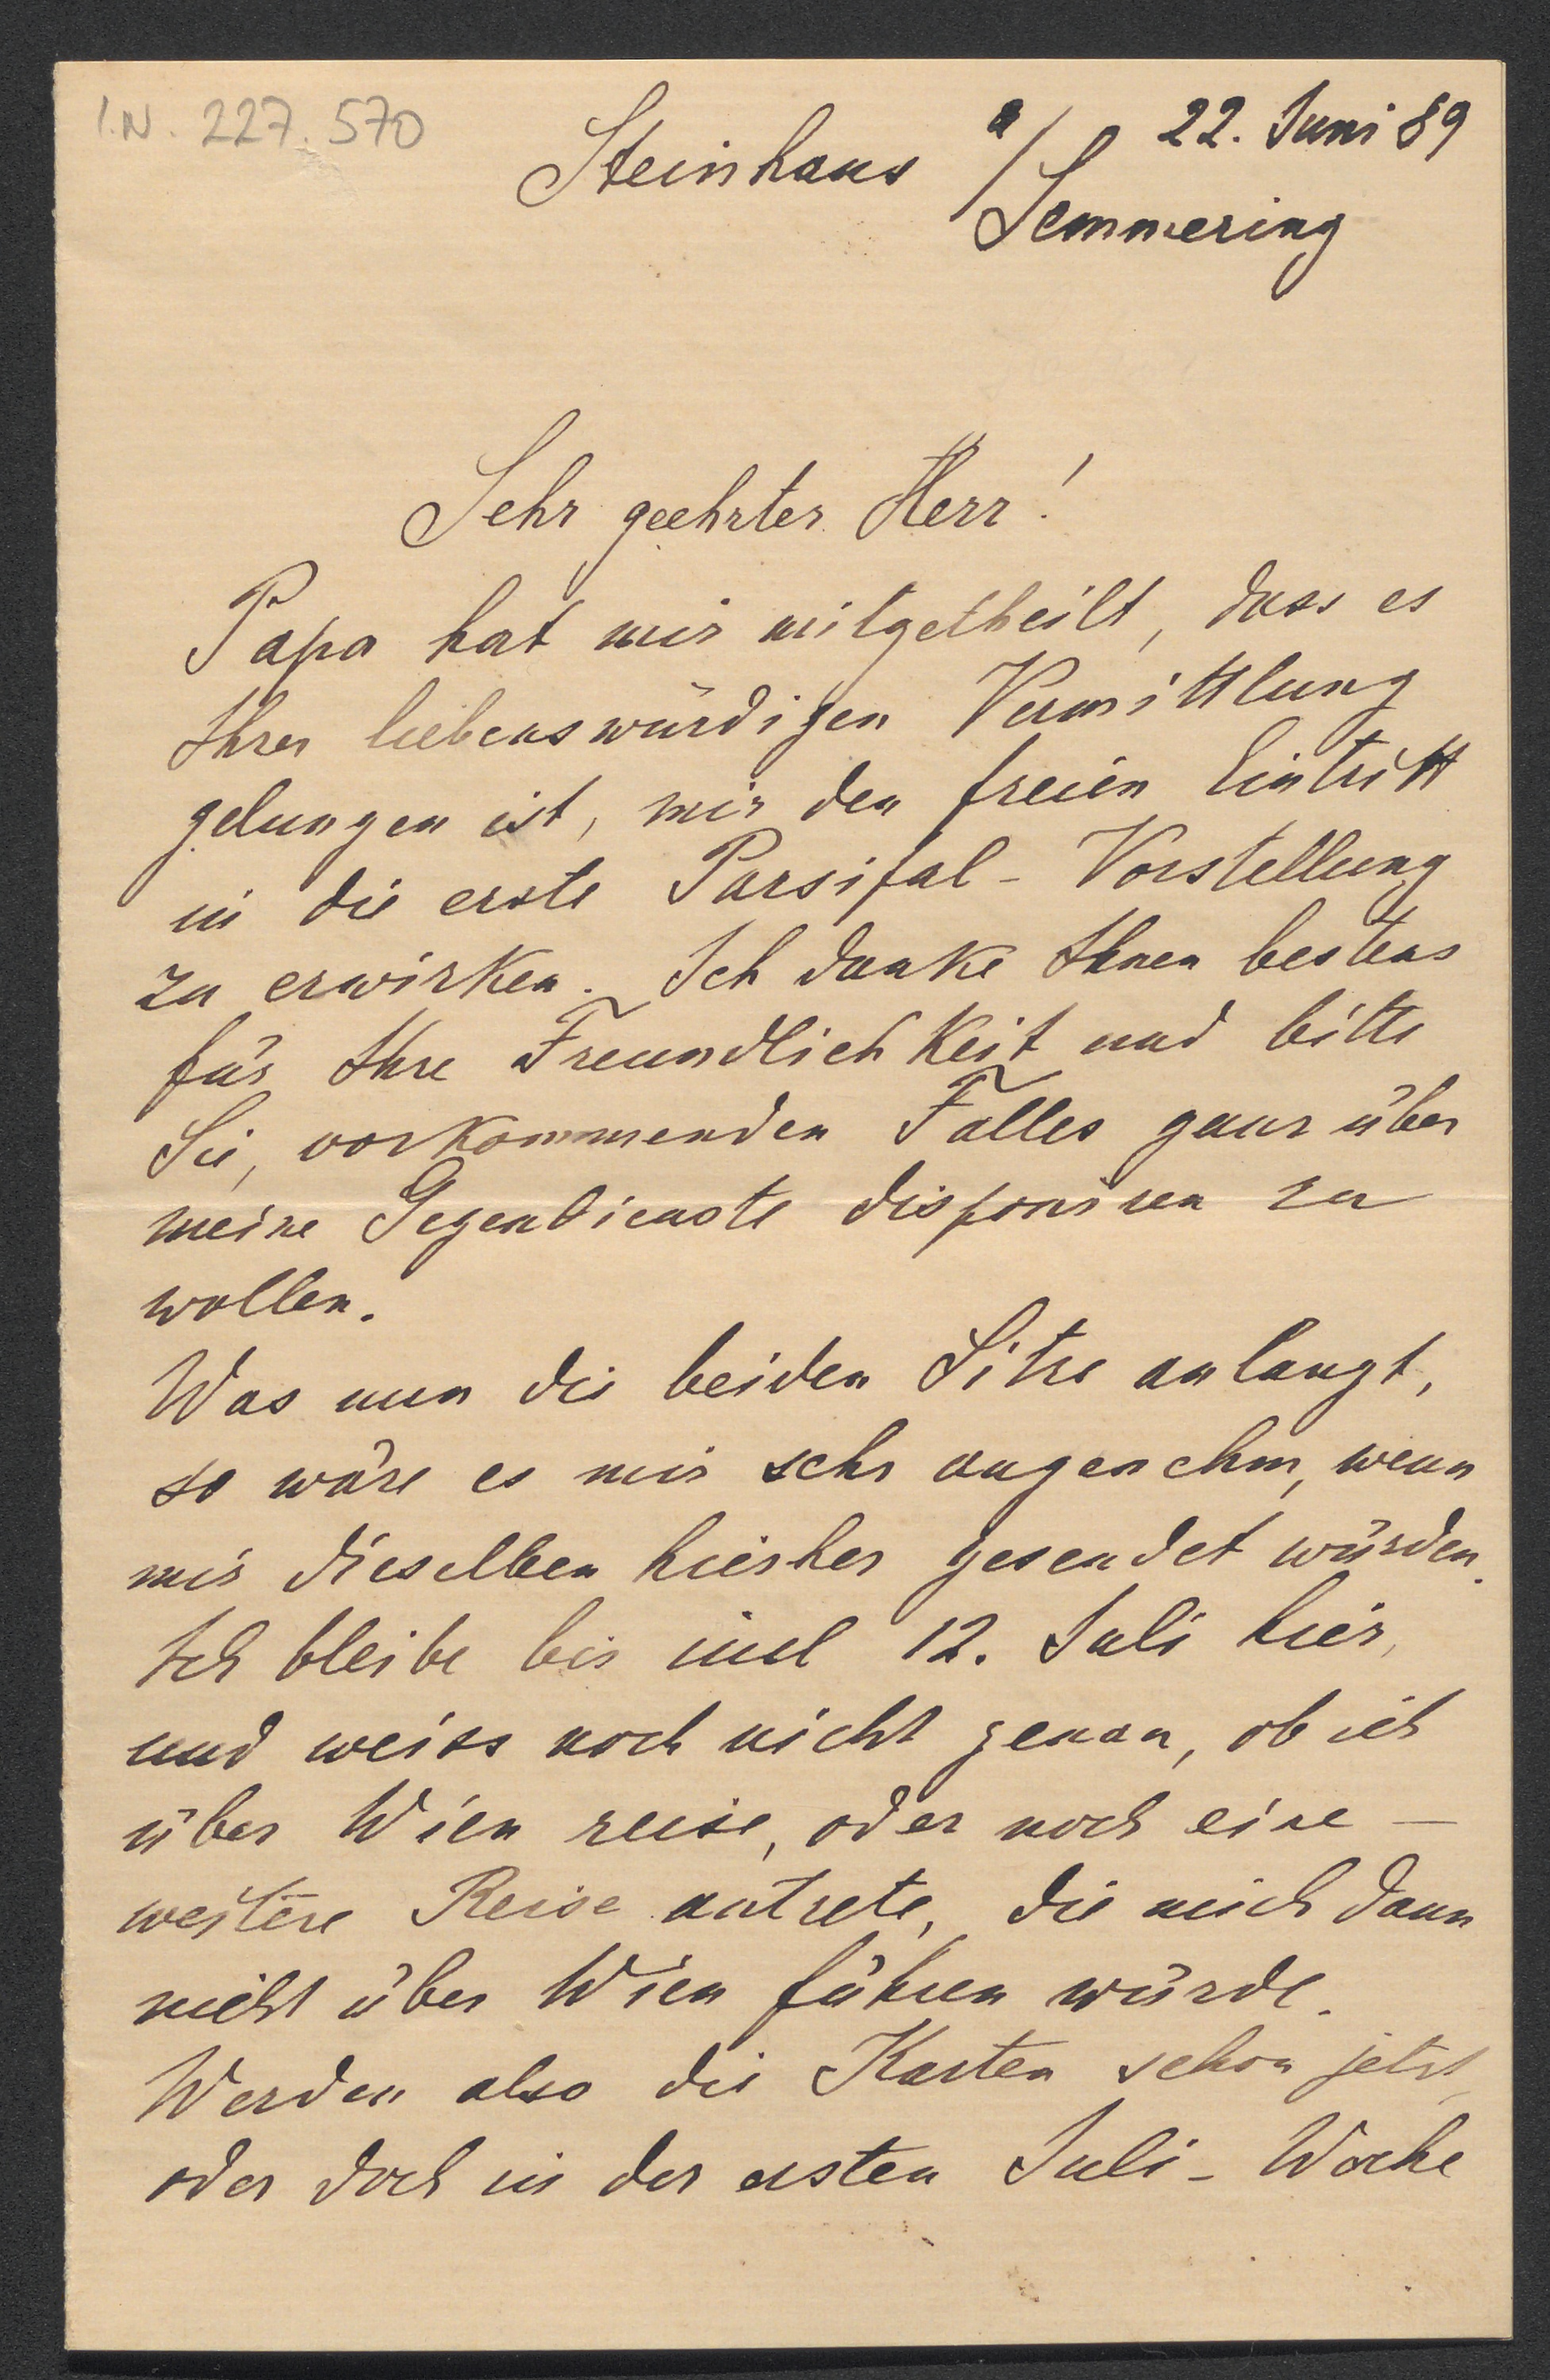 I.N. 227.570
Steinhaus a/ 22. Juni 89
Semmering
Sehr geehrter Herr!
Papa hat mir mitgetheilt, dass es
Ihrer liebenswürdigen Vermittlung
gelungen ist, mir den freien Eintritt
in die erste Parsifal - Vorstellung
zu erwirken. Ich danke Ihnen bestens
für Ihre Freundlichkeit und bitte
Sie, vorkommenden Falles ganz über
meine Gegendienste disponiren zu
wollen.
Was nun die beiden Sitze anlangt,
so wäre es mir sehr angenehm, wenn
mir dieselben hierher gesendet würden.
Ich bleibe bis incl 12. Juli hier,
und weiss noch nicht genau, ob ich
über Wien reise, oder noch eine —
weitere Reise antrete, die mich dann
nicht über Wien führen würde.
Werden also die Karten schon jetzt,
oder doch in der ersten Juli - Woche